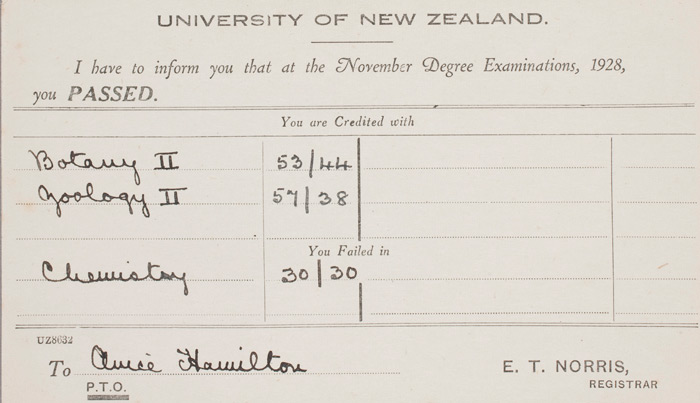 UNIVERSITY OF NEW ZEALAND.
I have to inform you that at the November Degree Examinations, 1928,
you PASSED.
You are Credited with
Botany II 53/44
Zoology II 57/38
You Failed in
Chemistry 30/30
UZ8632
To Avice Hamilton
P.T.O.
E. T. NORRIS,
REGISTRAR